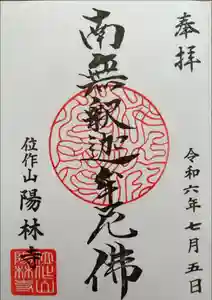 奉拝
令和六年七月五日
南無釈迦牟尼佛
位作山
陽林寺